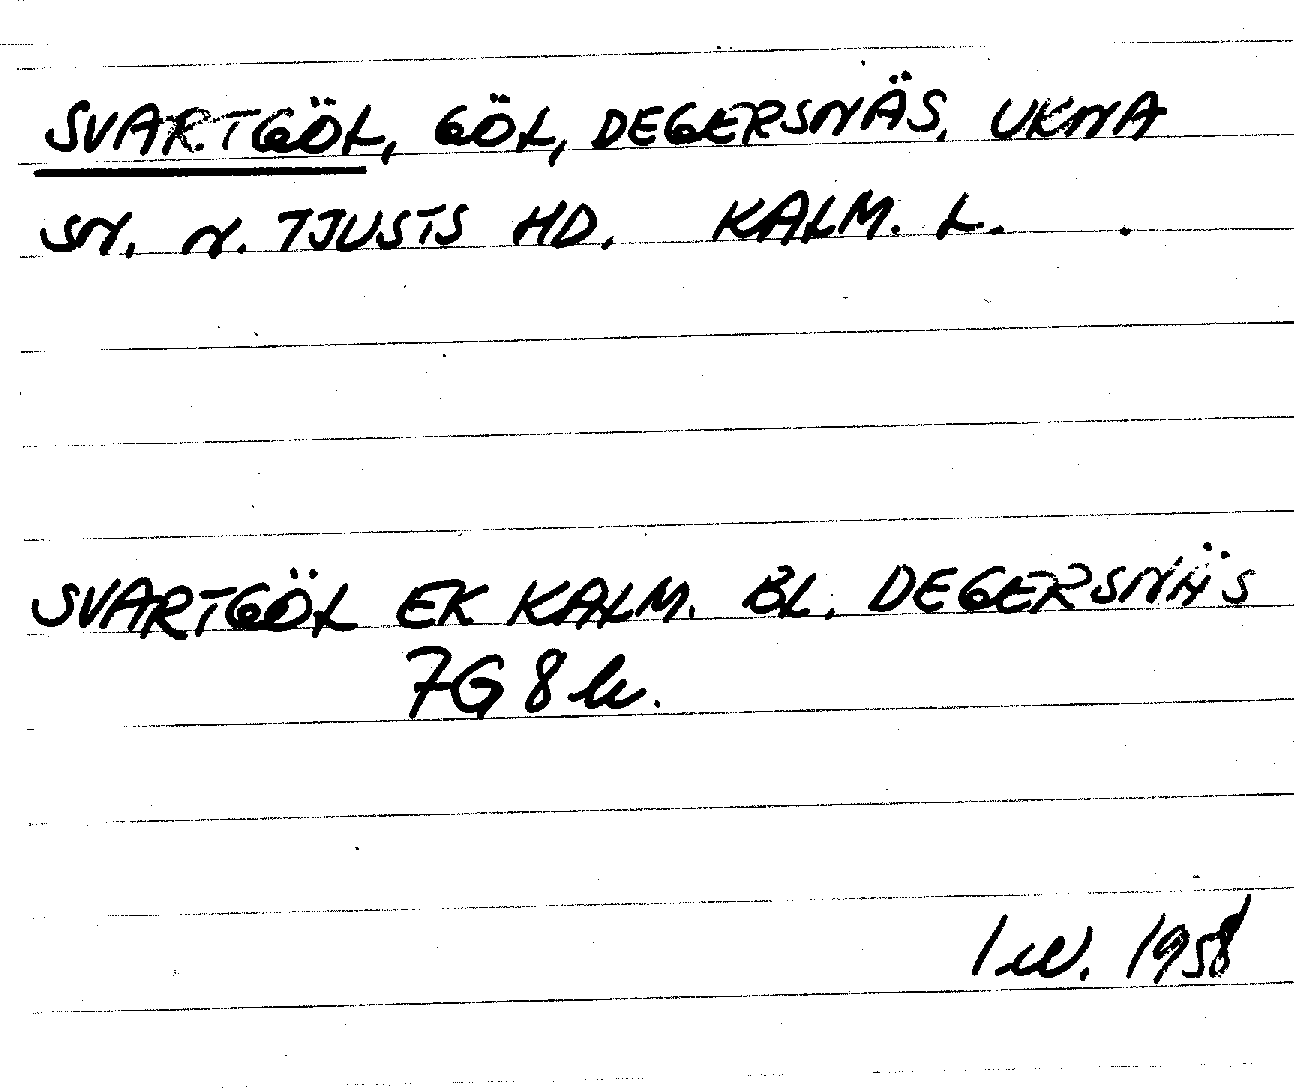 SVARTGÖL, GÖL, DEGERSNÄS, UKNA
SN. N. TJUSTS HD. KALM. L.
SVARTGÖL EK KALM. BL. DEGERSNÄS
7G 8
1958